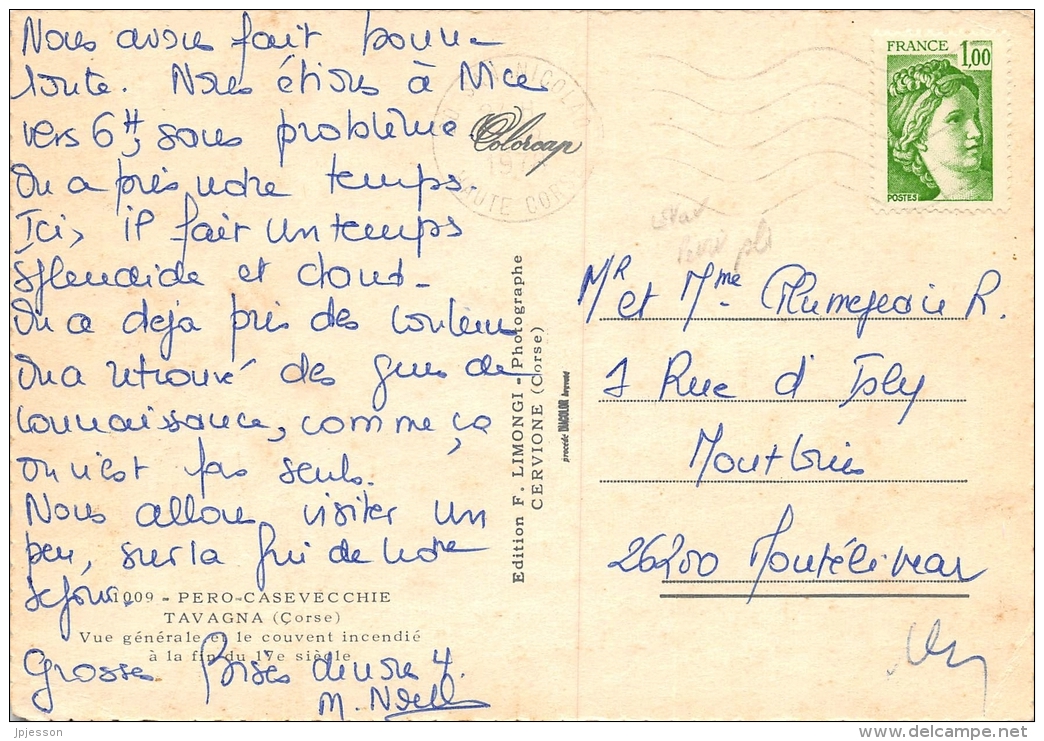 Nous avons fait bonne
route. Nous étions à Nice
vers 6H, sans problème.
On a pris notre temps
Ici, il fait un temps
splendide et chaud.
On a déjà pris des couleurs
On a retrouvé des gens de
connaissance, comme ça
on n'est pas seuls.
Nous allons visiter un
peu, sur la fin de notre
séjour.
1009 - PERO-CASEVECCHIE
TAVAGNA (Corse)
Vue générale et le couvent incendié
à la fin du 17e siècle
Grosses Bises de nous 4.
M. Noelle
Edition F. LIMONGI - Photographe
CERVIONE (Corse)
procédé DIACOLOR breveté
Colorcap
NICOLA
HAUTE CORSE
FRANCE 1,00
POSTES
Mr et Mme Plumejeaie R.
7 Rue d'Isly
26200 Montélimar
jpjesson
delcampe.net